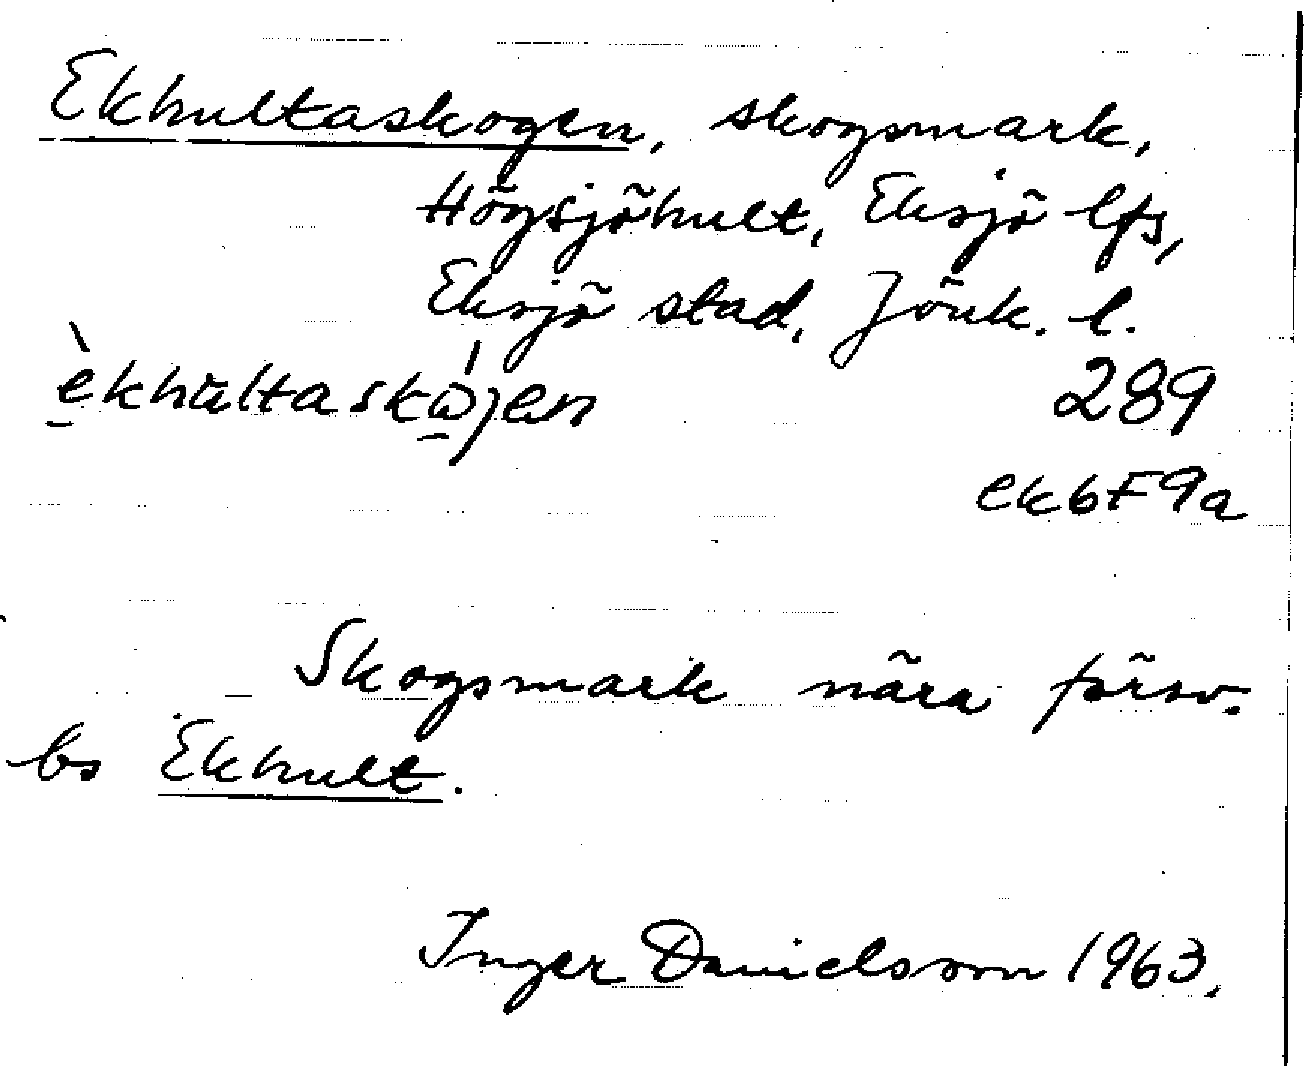 Ekhultaskogen, skogsmark,
Högsjöhult, Eksjö lfs,
Eksjö stad, Jönk. l.
èkhultaskå̀jen 289
ek6F9a
Skogsmark nära försv.
bs Ekhult.
Inger Danielsson 1963.